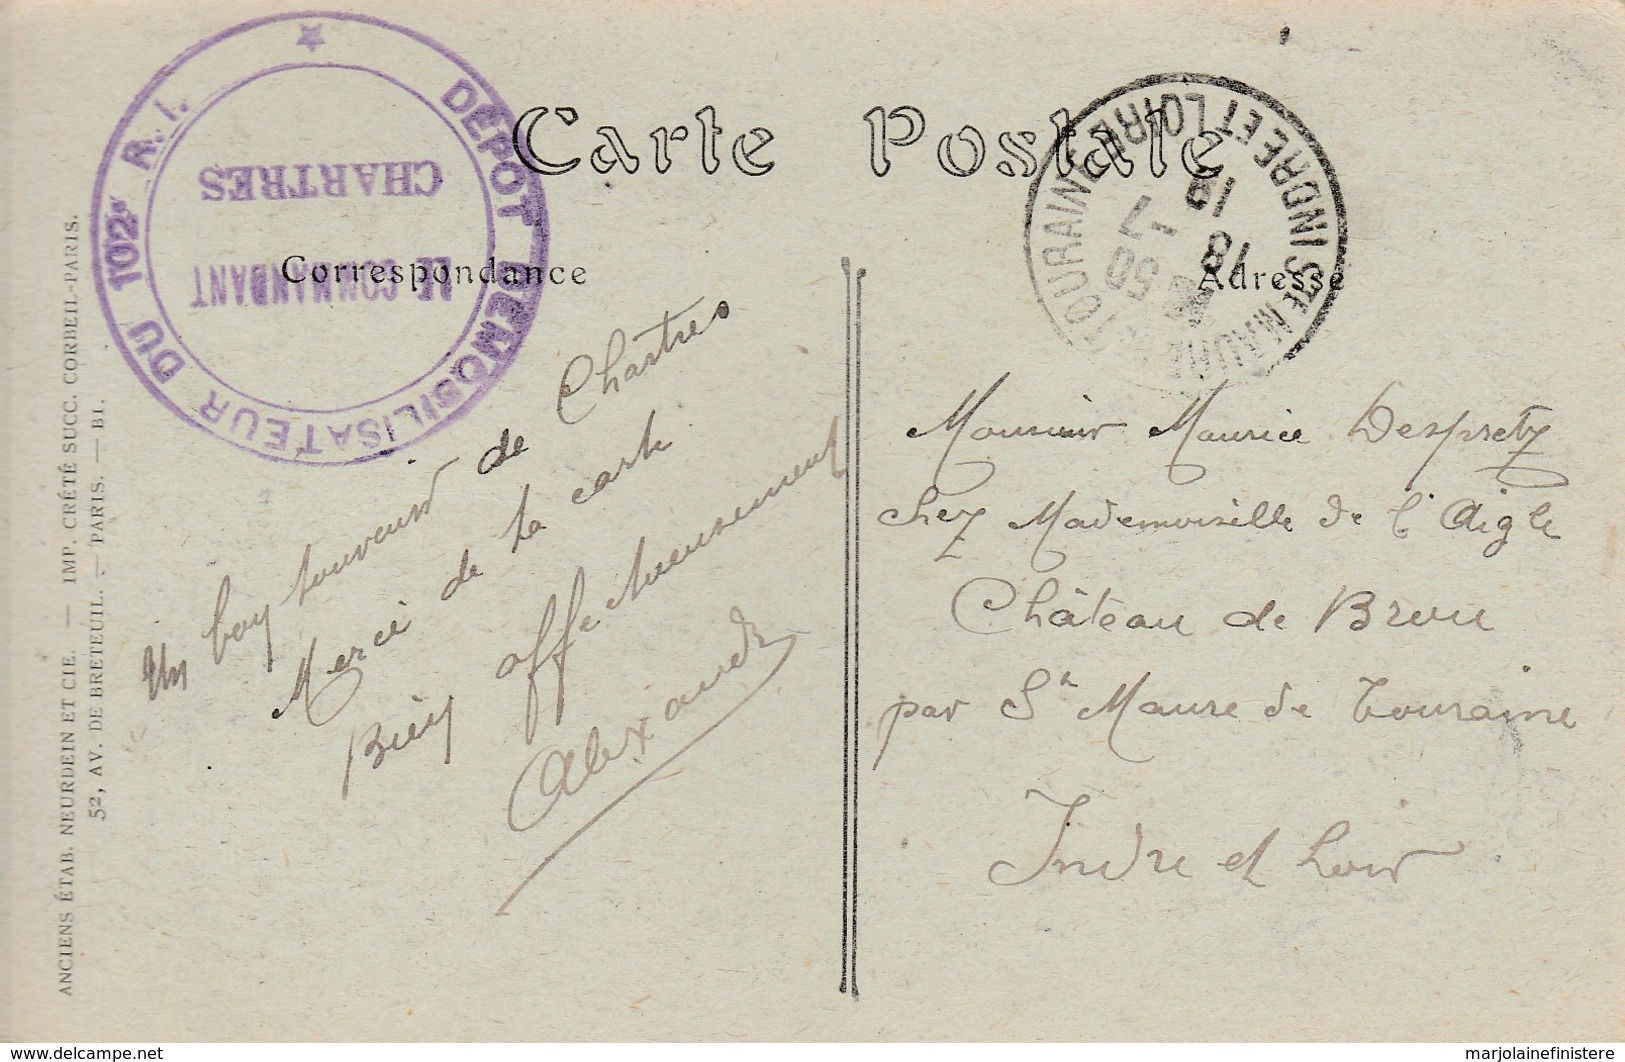 Carte Postale
Correspondance
Adresse
DÉPOT DÉMOBILISATEUR DU 102e R. I.
LE COMMANDANT
CHARTRES
STE MAURE DE TOURAINE INDRE ET LOIRE
18 50
-7
18
19
Un bon souvenir de Chartres
Merci de la carte
Bien affectueusement
Alexandre
Monsieur Maurice Despretz
chez Mademoiselle de l'Aigle
Château de Brou
par Ste Maure de Touraine
Indre et Loire
ANCIENS ÉTAB. NEURDEIN ET CIE. — IMP. CRÉTÉ SUCC. CORBEIL-PARIS.
52, AV. DE BRETEUIL. — PARIS. — BI.
www.delcampe.net
marjolainefinistere